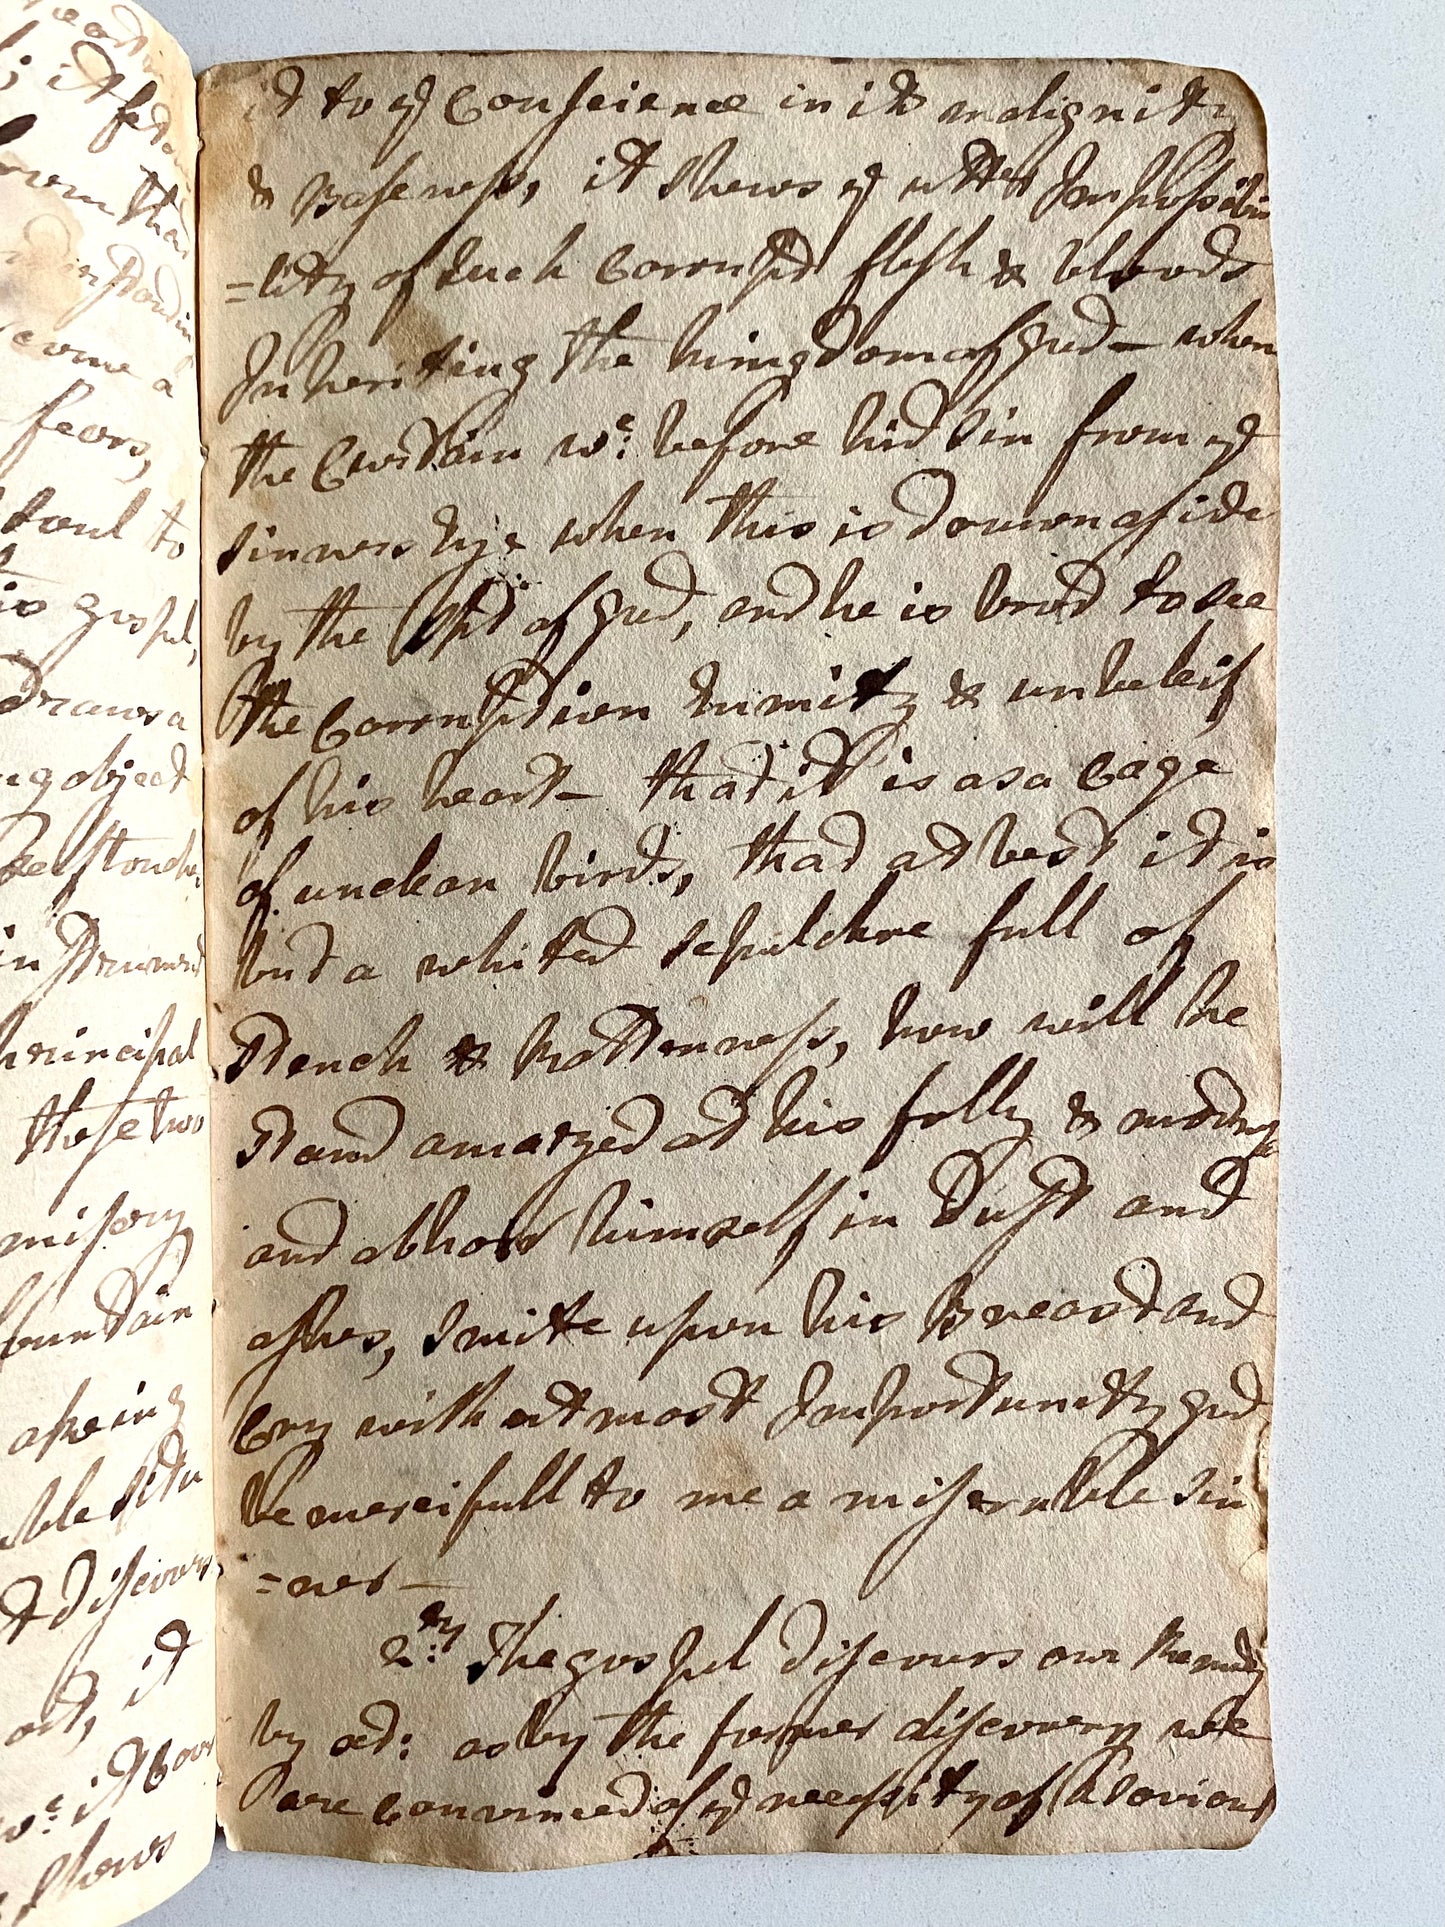 it to ye Conscience in its malignity
& Baseness, it shews ye utter Impossibi
=lity of such Corrupted flesh & bloods
Inheriting the kingdom of God— when
the Curtain wc: before hid sin from ye
sinners eye when this is drawn aside
by the Spt of God, and he is brot to see
the Corruption Enmity & unbeleif
of his heart— that it is as a Cage
of unclean birds, that at best it is
but a whited sepulchre full of
stench & Rottenness, how will he
stand amazed at his folly & madness
and abhorr himself in Dust and
ashes, smite upon his Breast and
Cry with utmost Importunity God
be mercifull to me a miserable sin
=ner—
2.ly The gospel discovers our Remedy
by it: as by the former discovery we
are convinced of ye necessity of a Saviour
fears,
soul to
gospel,
draws a
object
principal
these two
misery
it
shews